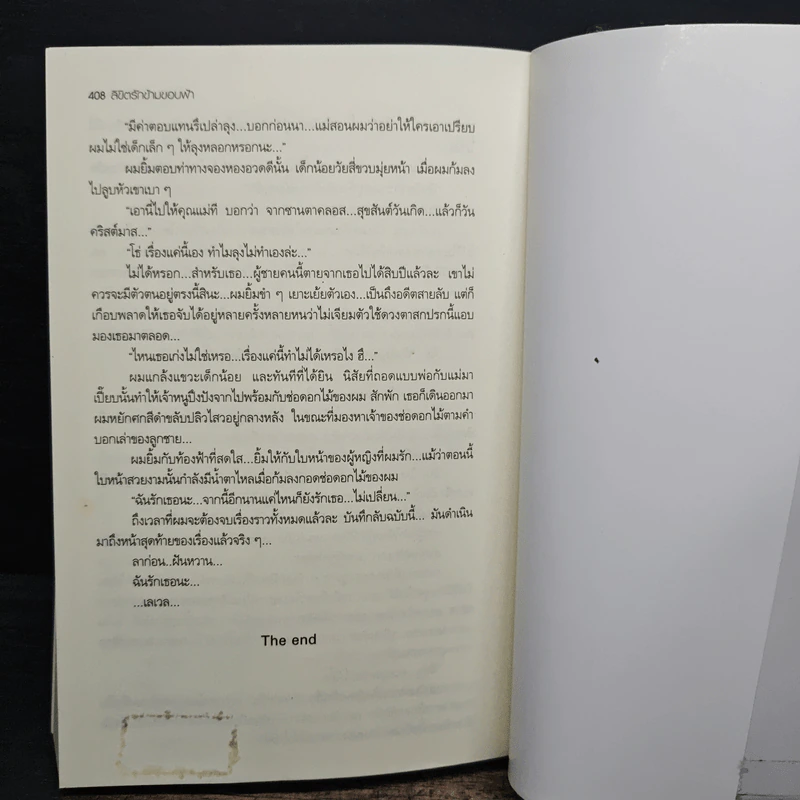 408 ลิขิตรักข้ามขอบฟ้า
“มีค่าตอบแทนรึเปล่าลุง...บอกก่อนนา...แม่สอนผมว่าอย่าให้ใครเอาเปรียบ
ผมไม่ใช่เด็กเล็ก ๆ ให้ลุงหลอกหรอกนะ...”
ผมยิ้มตอบท่าทางจองหองอวดดีนั้น เด็กน้อยวัยสี่ขวบมุ่ยหน้า เมื่อผมก้มลง
ไปลูบหัวเขาเบา ๆ
“เอานี่ไปให้คุณแม่ที บอกว่า จากซานตาคลอส...สุขสันต์วันเกิด...แล้วก็วัน
คริสต์มาส...”
“โธ่ เรื่องแค่นี้เอง ทำไมลุงไม่ทำเองล่ะ...”
ไม่ได้หรอก...สำหรับเธอ...ผู้ชายคนนี้ตายจากเธอไปได้สิบปีแล้วละ เขาไม่
ควรจะมีตัวตนอยู่ตรงนี้สินะ...ผมยิ้มขำ ๆ เยาะเย้ยตัวเอง...เป็นถึงอดีตสายลับ แต่ก็
เกือบพลาดให้เธอจับได้อยู่หลายครั้งหลายหนว่าไม่เจียมตัวใช้ดวงตาสกปรกนี้แอบ
มองเธอมาตลอด...
“ไหนเธอเก่งไม่ใช่เหรอ...เรื่องแค่นี้ทำไม่ได้เหรอไง ฮึ...”
ผมแกล้งแขวะเด็กน้อย และทันทีที่ได้ยิน นิสัยที่ถอดแบบพ่อกับแม่มา
เปี๊ยบนั้นทำให้เจ้าหนูปึงปังจากไปพร้อมกับช่อดอกไม้ของผม สักพัก เธอก็เดินออกมา
ผมหยักศกสีดำขลับปลิวไสวอยู่กลางหลัง ในขณะที่มองหาเจ้าของช่อดอกไม้ตามคำ
บอกเล่าของลูกชาย...
ผมยิ้มกับท้องฟ้าที่สดใส...ยิ้มให้กับใบหน้าของผู้หญิงที่ผมรัก...แม้ว่าตอนนี้
ใบหน้าสวยงามนั้นกำลังมีน้ำตาไหลเมื่อก้มลงกอดช่อดอกไม้ของผม
“ฉันรักเธอนะ...จากนี้อีกนานแค่ไหนก็ยังรักเธอ...ไม่เปลี่ยน...”
ถึงเวลาที่ผมจะต้องจบเรื่องราวทั้งหมดแล้วละ บันทึกลับฉบับนี้... มันดำเนิน
มาถึงหน้าสุดท้ายของเรื่องแล้วจริง ๆ...
ลาก่อน..ฝันหวาน...
ฉันรักเธอนะ...
...เลเวล...
The end